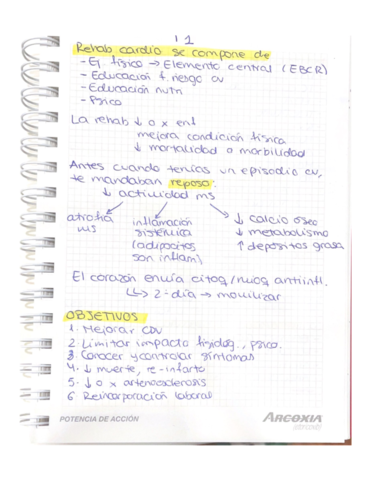 11
Rehab cardio se compone de
- Ej. físico → Elemento central (EBCR)
- Educación f. riesgo cv
- Educación nutri
- Psico
La rehab ↓ 0 x enf
mejora condición física
↓ mortalidad o morbilidad
Antes cuando tenías un episodio cv,
te mandaban reposo.
↓ actividad ms
atrofia ms
inflamación sistémica (adipocitos son inflam)
↓ calcio oseo
↓ metabolismo
↑ depositos grasa
El corazón envía citoq/mioq antiinfl.
↳ 2º día → movilizar
OBJETIVOS
1. Mejorar CDV
2. Limitar impacto fisiológ., psico.
3. Conocer y controlar síntomas
4. ↓ muerte, re-infarto
5. ↓ 0 x arterosclerosis
6 Reincorporación laboral
POTENCIA DE ACCIÓN
ARCOXIA